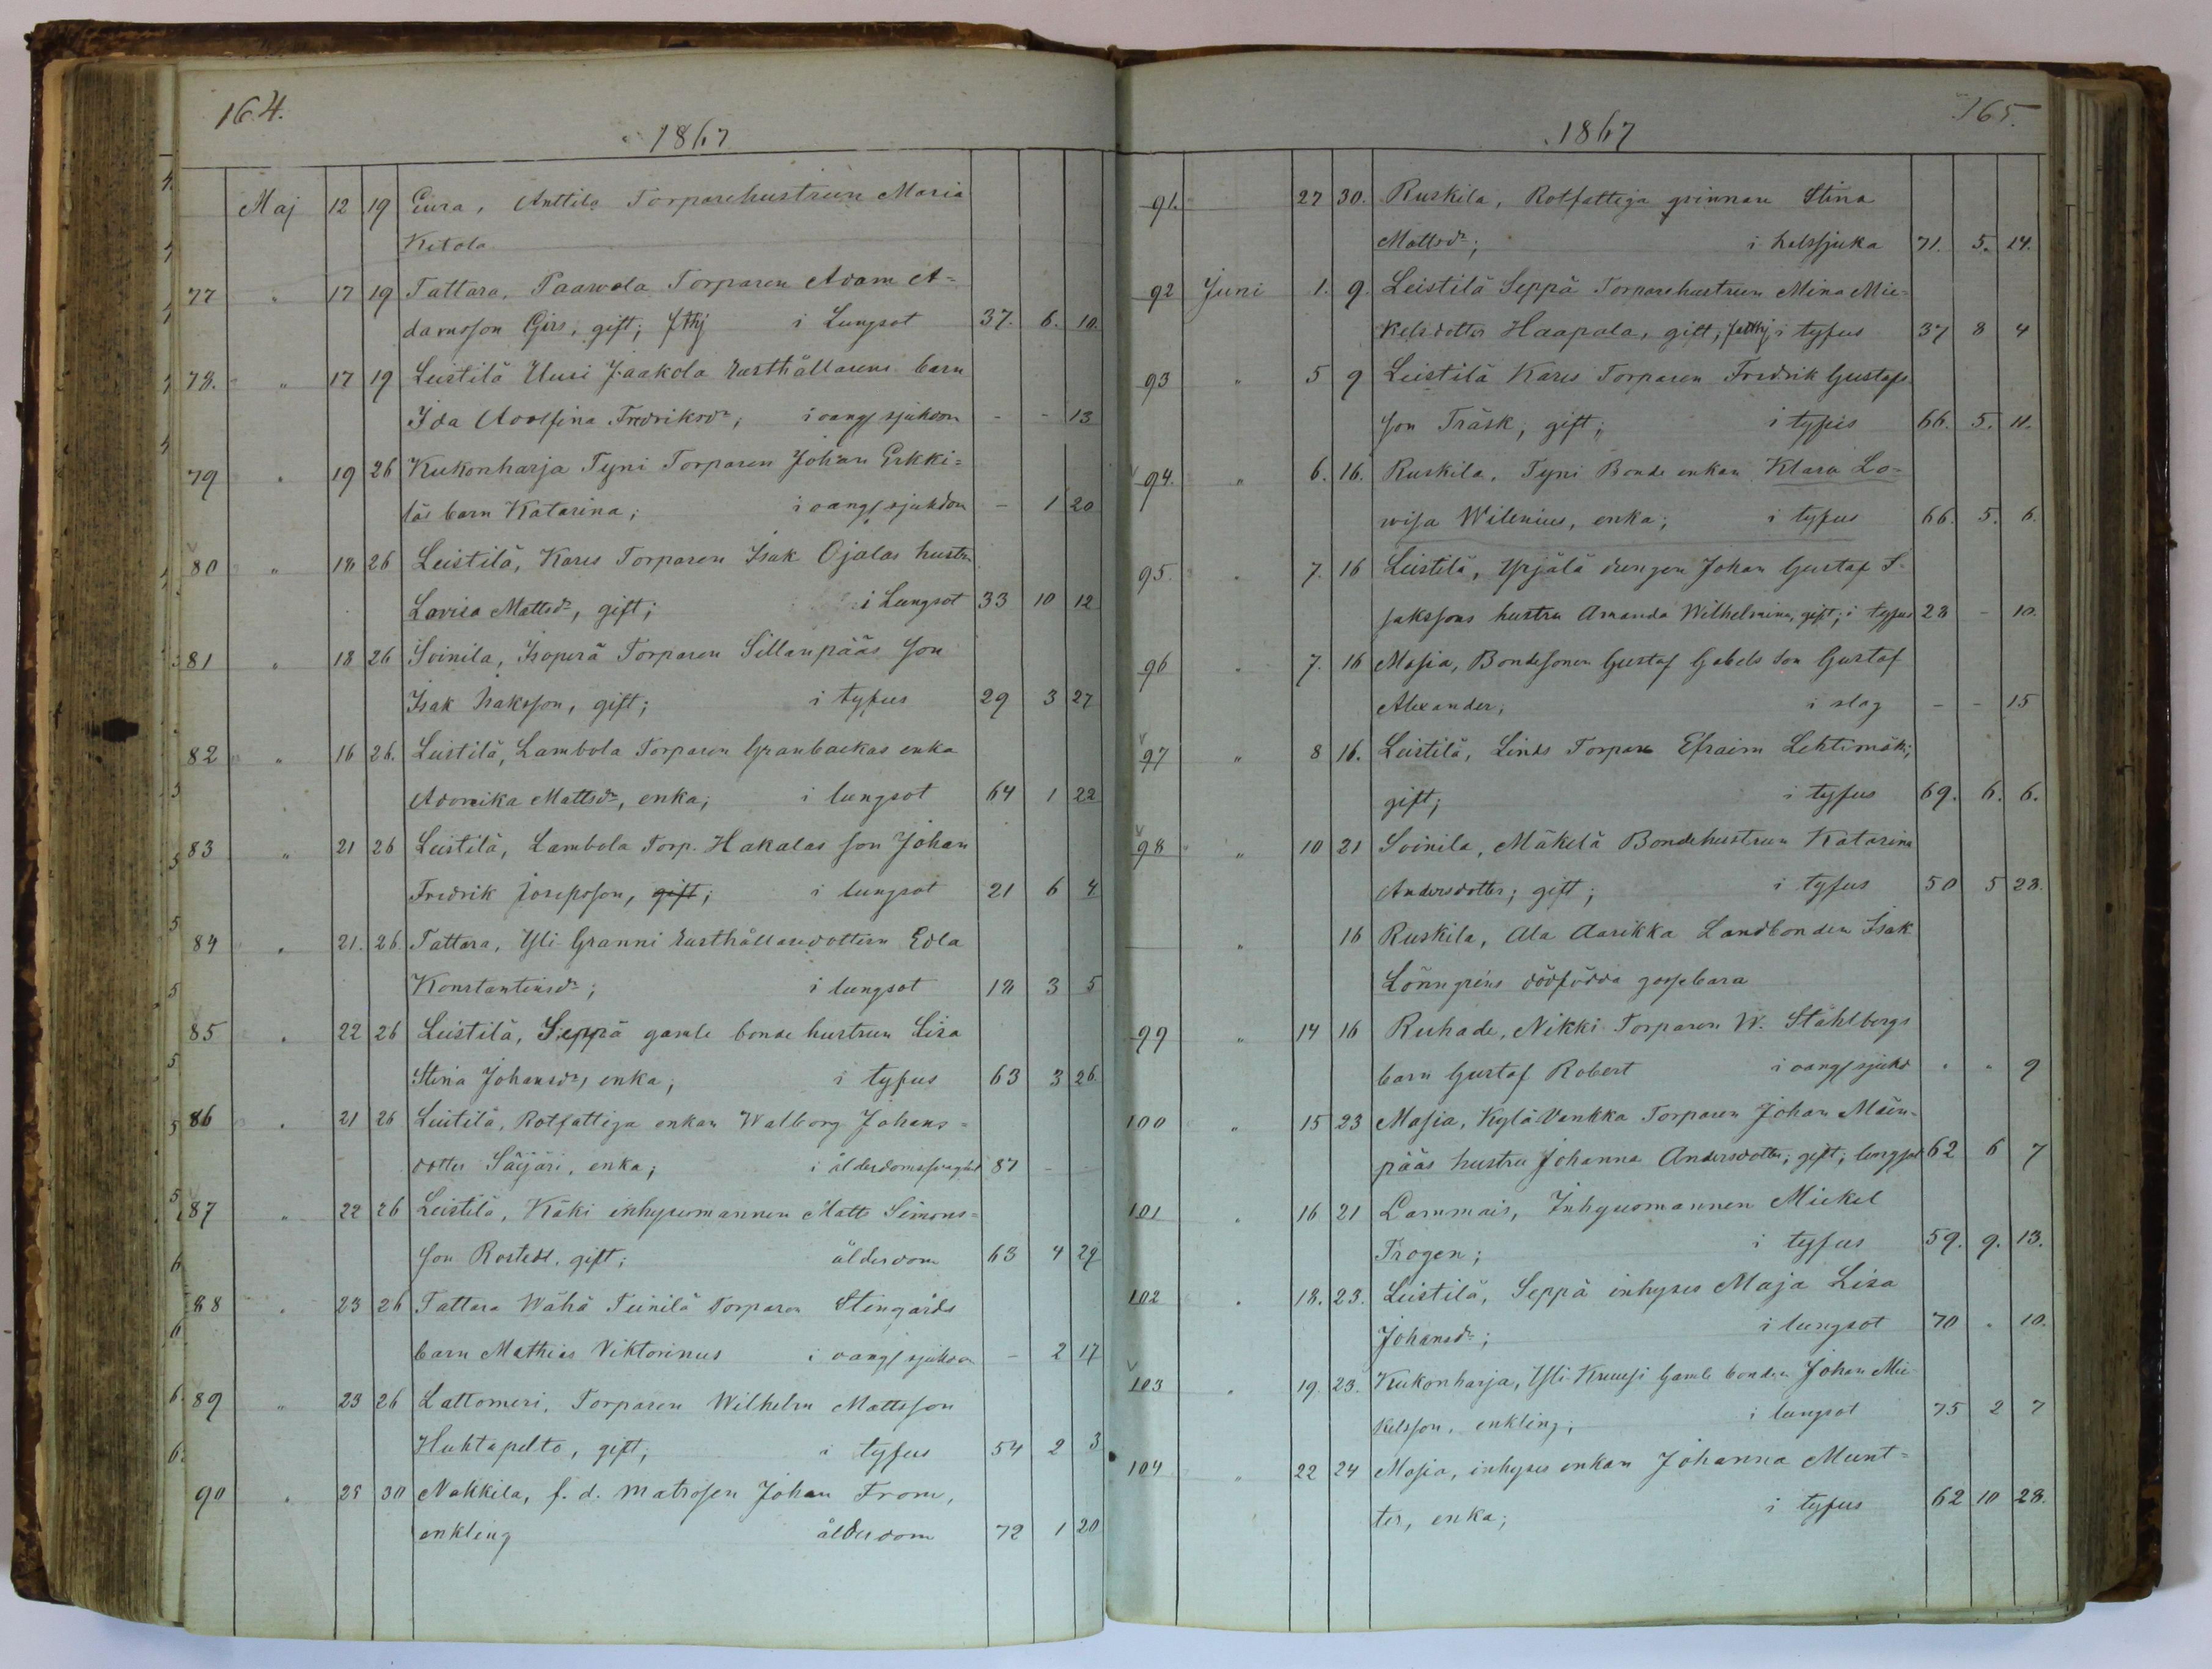 164.
1867
Maj 12 19 Eura, Anttila Torparehustrun Maria
Ketola
77 " 17 19 Tattara, Paavola Torparen Adam A=
damsson Girs, gift; i Lungsot 37. 6. 10.
78. " 17 19 Leistilä Uusi Jaakola Rusthållarens barn
Ida Adolfina Fredriksdr; i oang sjukdom - - 13
79 " 19 26 Kukonharja Tyni Torparen Johan Erkki=
läs barn Katarina; i oang sjukdom - 1 20
80 " 18 26 Leistilä, Kares Torparen Isak Ojalas hustru
Lovisa Mattsdr, gift; i Lungsot 33 10 12
81 " 18 26 Soinila, Isoperä Torparen Sillanpääs son
Isak Isaksson, gift; i tyfus 29 3 27
82 " 16 26. Leistilä, Lambola Torparen Granbackas enka
Adomika Mattsdr, enka; i lungsot 64 1 22
83 " 21 26 Leistilä, Lambola Torp. Hakalas son Johan
Fredrik Josepsson, gift; i lungsot 21 6 4
84 " 21. 26 Tattara, Yli Granni Rusthållaredottern Edla
Konstantinsdr; i lungsot 18 3 5
85 " 22 26 Leistilä, Seppä gamle bonde hustrun Lisa
Stina Johansdr, enka; i tyfus 63 3 26
86 " 21 26 Leistilä, Rotfattiga enkan Walborg Johans=
dotter Säijäri, enka; i ålderdomssvaghet 87 - -
87 " 22 26 Leistilä, Käki inhysesmannen Matts Simons=
son Rostedt, gift; ålderdom 63 4 29
88 " 23 26 Tattara Wähä Teinilä Torparen Stengårds
barn Mathias Viktorinus i oang sjukdom - 2 17
89 " 23 26 Lattomeri, Torparen Wilhelm Mattsson
Huhtapelto, gift; i tyfus 54 2 3
90 " 25 30 Nakkila, f. d. matrosen Johan From,
enkling ålderdom 72 1 20
165.
1867
91. 27 30. Ruskila, Rotfattiga qvinnan Stina
Mattsdr; i halssjuka 71. 5. 14.
92 Juni 1. 9. Leistilä Seppä Torparehustrun Mina Mic=
kelsdotter Haapala, gift; i tyfus 37 8 4
93 " 5 9 Leistilä Kares Torparen Fredrik Gustafs
son Träsk, gift; i tyfus 66. 5. 11.
94. " 6. 16. Ruskila, Tyni Bonde enkan Klara Lo=
wisa Wilenius, enka; i tyfus 66. 5. 6.
95. " 7. 16 Leistilä, Yrjälä drengen Johan Gustaf I-
sakssons hustru Amanda Wilhelmina, gift; i tyfus 28 - 10.
96 " 7. 16 Masia, Bondesonen Gustaf Gabels son Gustaf
Alexander; i slag - - 15
97 " 8 16. Leistilä, Linds Torpare Efraim Lehtimäki;
gift; i tyfus 69. 6. 6.
98 " 10 21 Soinila, Mäkelä Bondehustrun Katarina
Andersdotter; gift; i tyfus 50 5 28.
" 16 Ruskila, Ala Aarikka Landbonden Isak
Lönngréns dödfödda gossebarn
99 " 14 16 Ruhade, Nikki Torparen W. Ståhlbergs
barn Gustaf Robert i oang sjukd " " 9
100 " 15 23 Masia, Kylä-Vankka Torparen Johan Mäen-
pääs hustru Johanna Andersdotter; gift; lungsot 62 6 7
101 " 16 21 Lammais, Inhysesmannen Mickel
Trogen; i tyfus 59. 9. 13.
102 " 18. 23. Leistilä, Seppä inhyses Maja Lisa
Johansdr; i lungsot 70 " 10.
103 " 19. 23. Kukonharja, Yli-Kruusi Gamle bonden Johan Mic
kelsson, enkling; i lungsot 75 2 7
104 " 22 24 Masia, inhyses enkan Johanna Munt=
ter, enka; i tyfus 62 10 28.